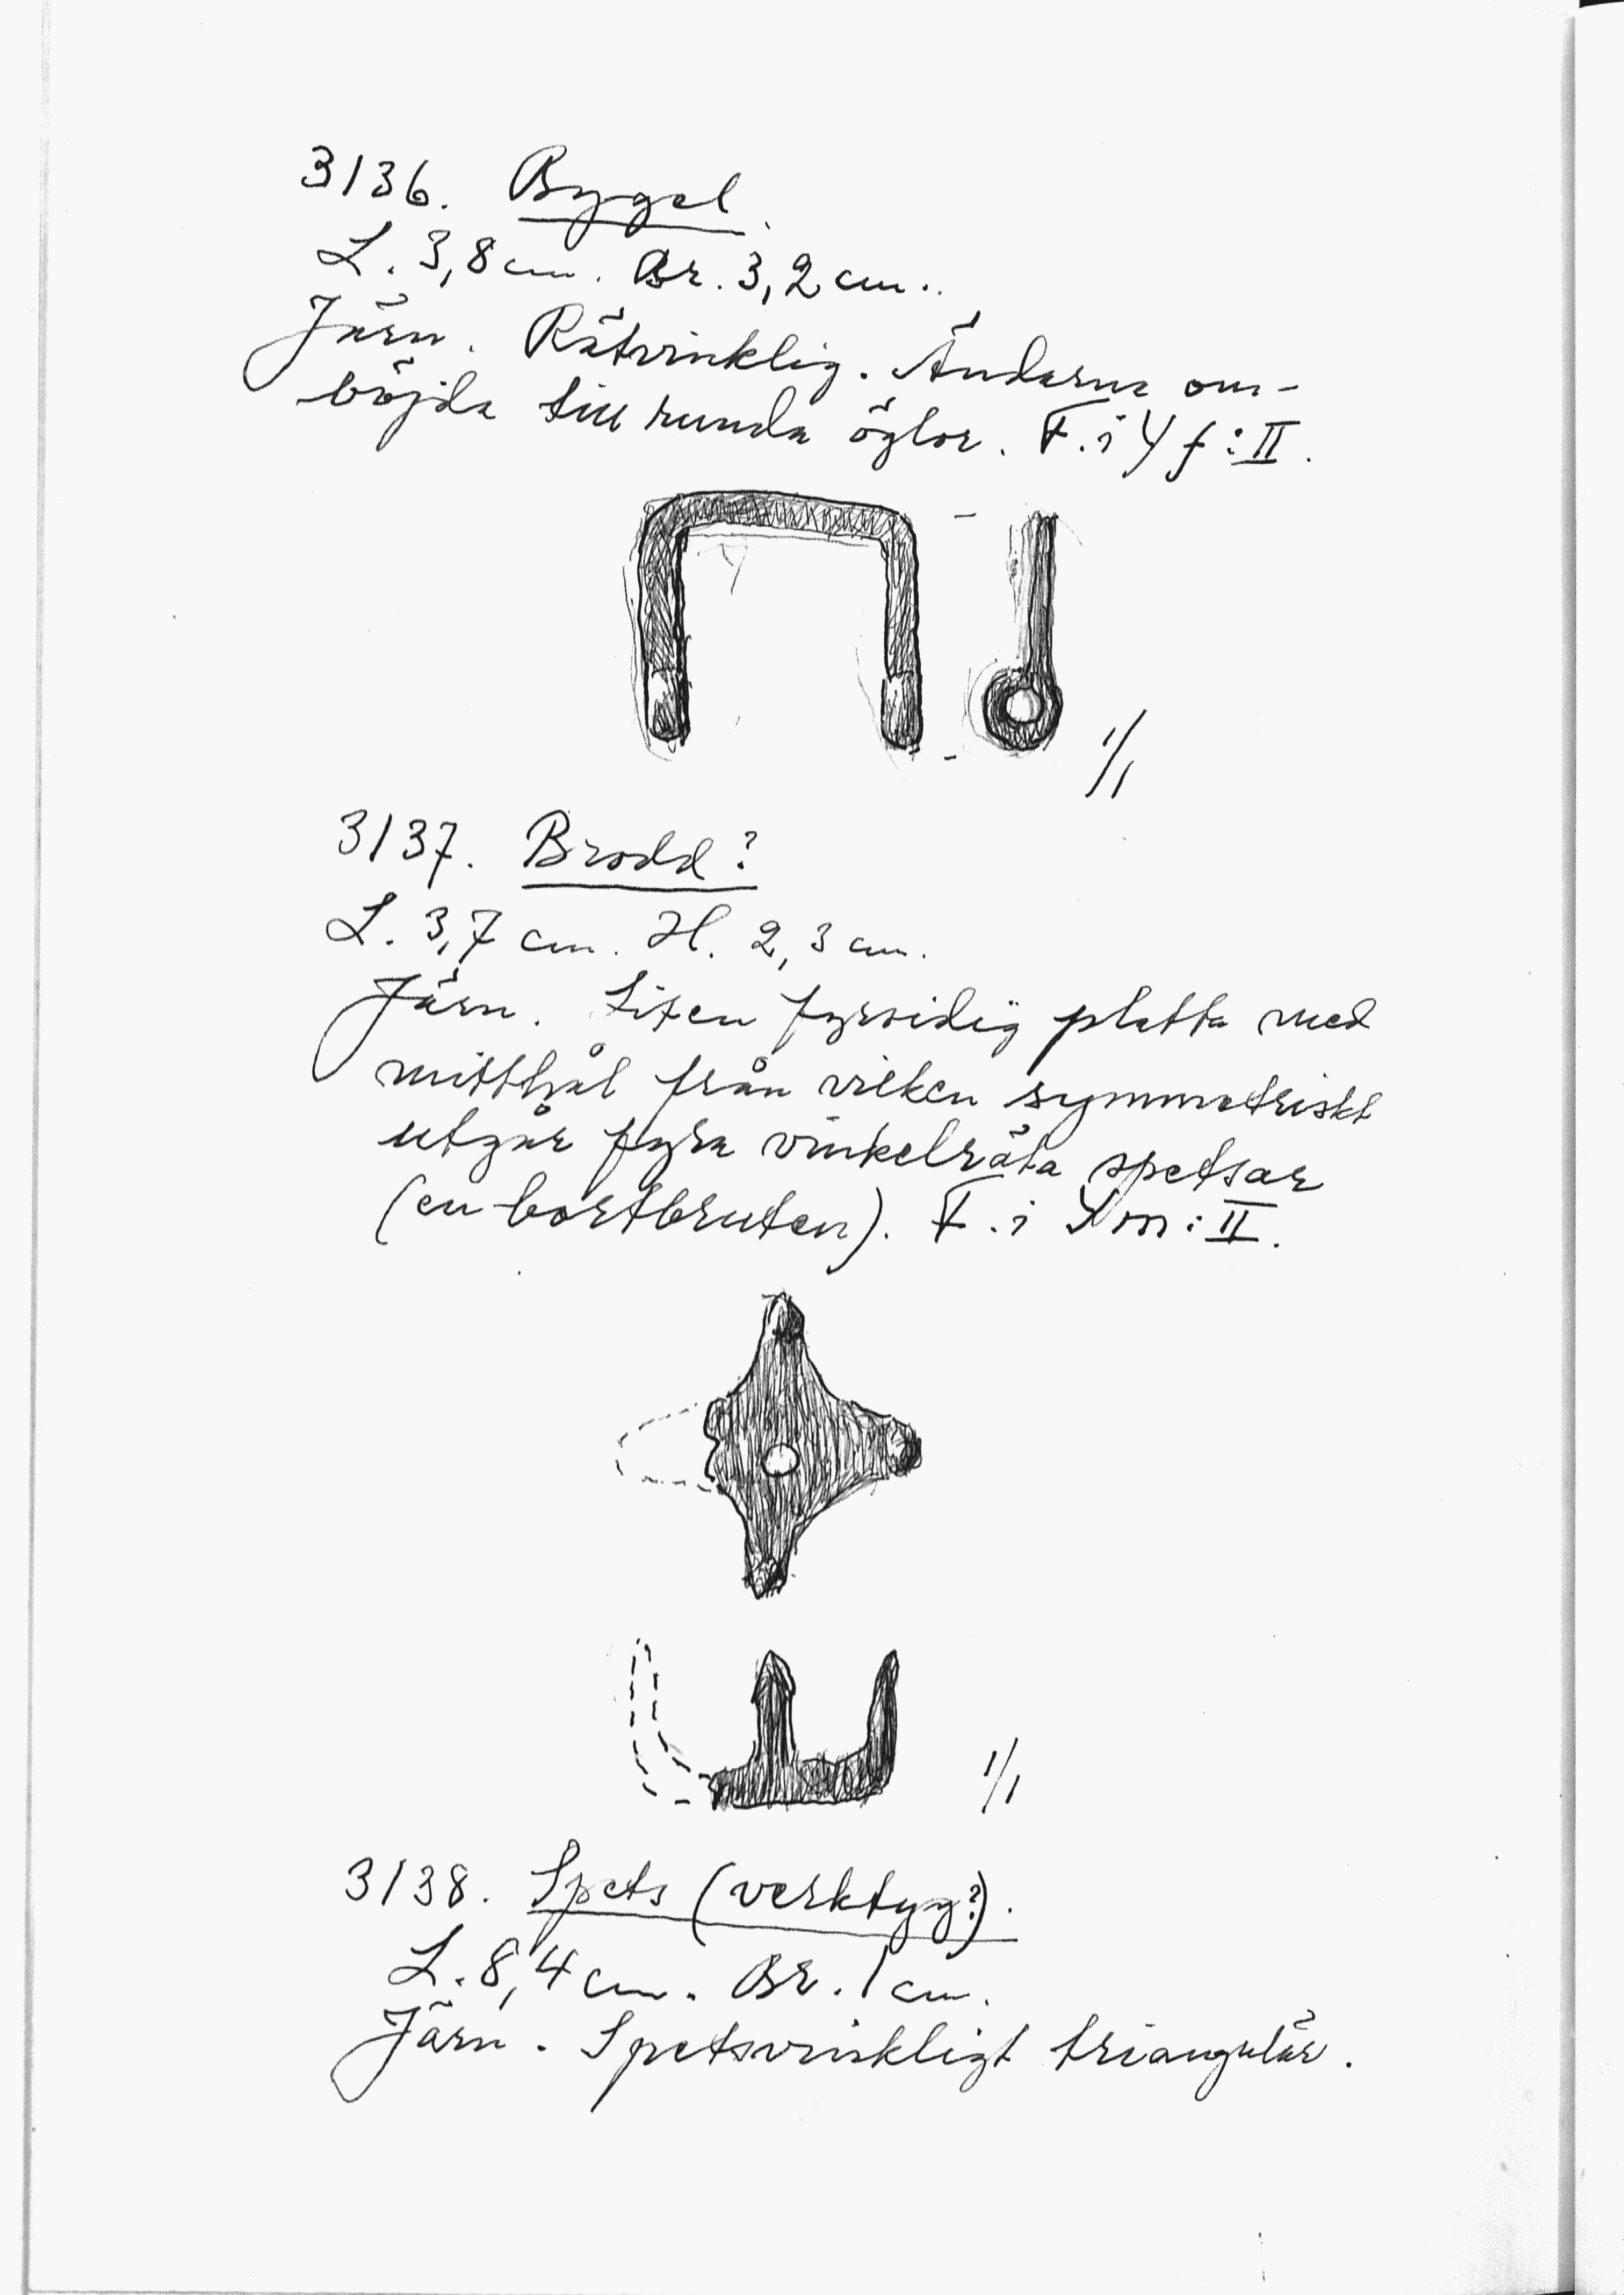 3136. Bygel.
L. 3,8 cm. Br. 3,2 cm.
Järn. Rätvinklig. Ändarna om-
böjda till runda öglor. F. i Y f : II.
1/1
3137. Brodd?
L. 3,7 cm. H. 2,3 cm.
Järn. Liten fyrsidig platta med
mitthål från vilken symmetriskt
utgår fyra vinkelräta spetsar
(en bortbruten). F. i Y m : II.
1/1
3138. Spets (verktyg?).
L. 8,4 cm. Br. 1 cm.
Järn. Spetsvinkligt triangulär.